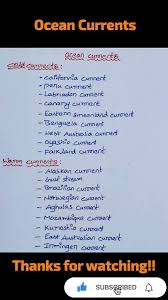 Ocean Currents
Ocean currents
Cold currents :-
- california current
- peru current
- Labrador current
- canary current
- Eastern Greenland current
- Benguela current
- West Australia current
- Oyashio current
- Falkland current
Warm currents :-
- Alaskan current
- Gulf stream
- Brazilian current
- Norwegian current
- Aghulas current
- Mozambique current
- Kuroshio current
- East Australian current
- Irminger current
Thanks for watching!!
SUBSCRIBED